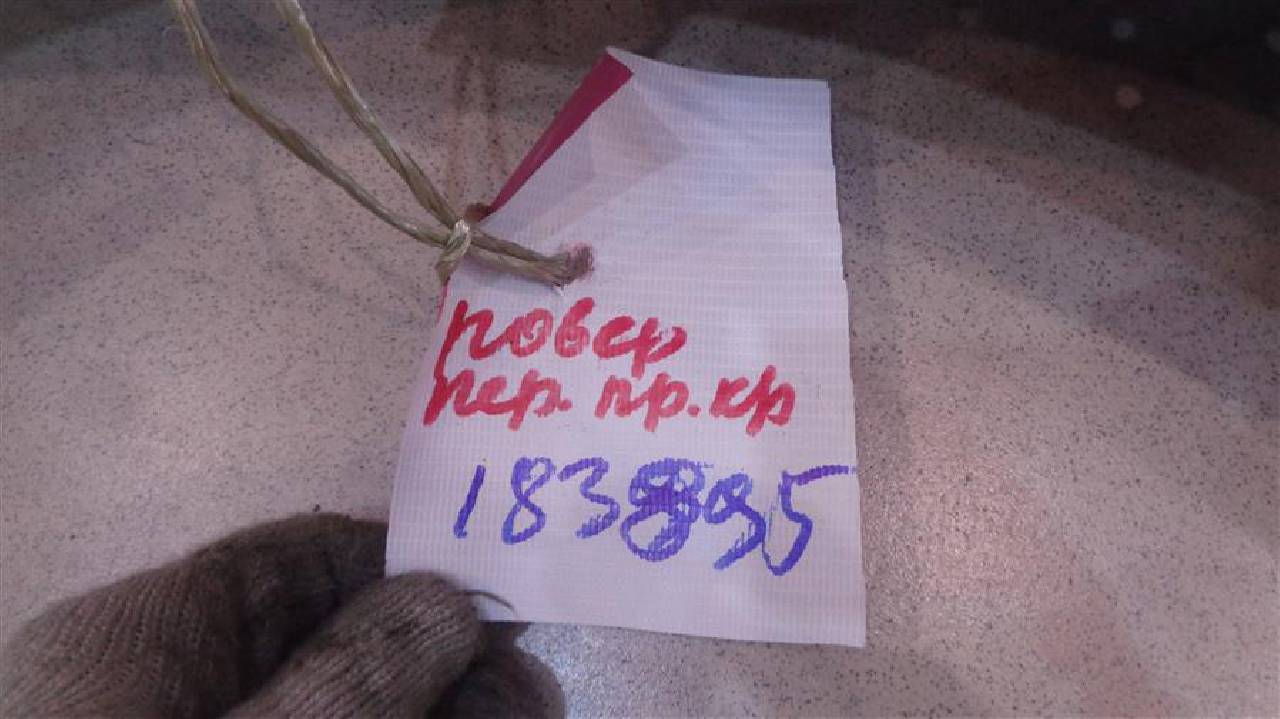 ровер
пер. пр. кр
183895